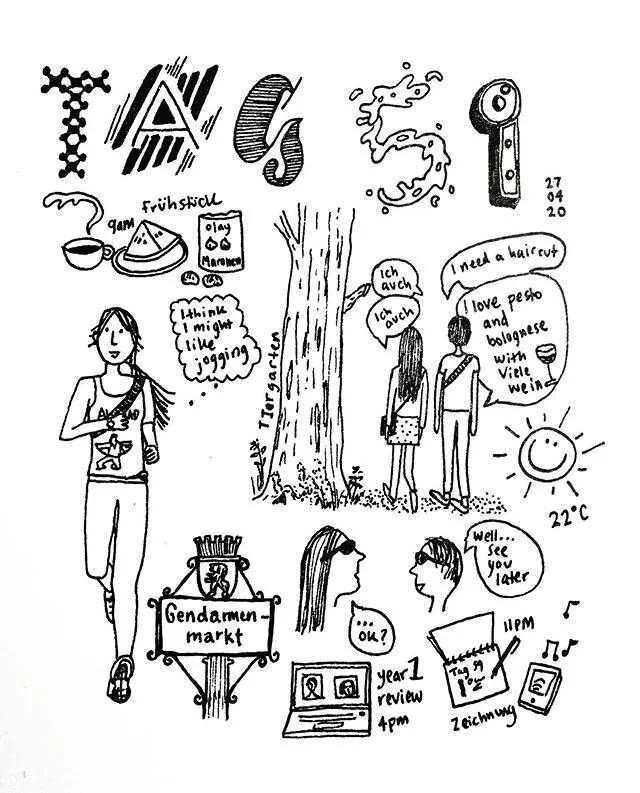 TAG 59
27
04
20
Frühstück
9am
olay
Maronen
I think
I might
like
jogging
Tiergarten
Ich
auch
Ich
auch
I need a haircut
I love pesto
and
bolognese
with
viele
wein
22°C
Gendarmen-
markt
...
OK?
Well...
see
you
later
year 1
review
4pm
11PM
Tag 59
Zeichnung